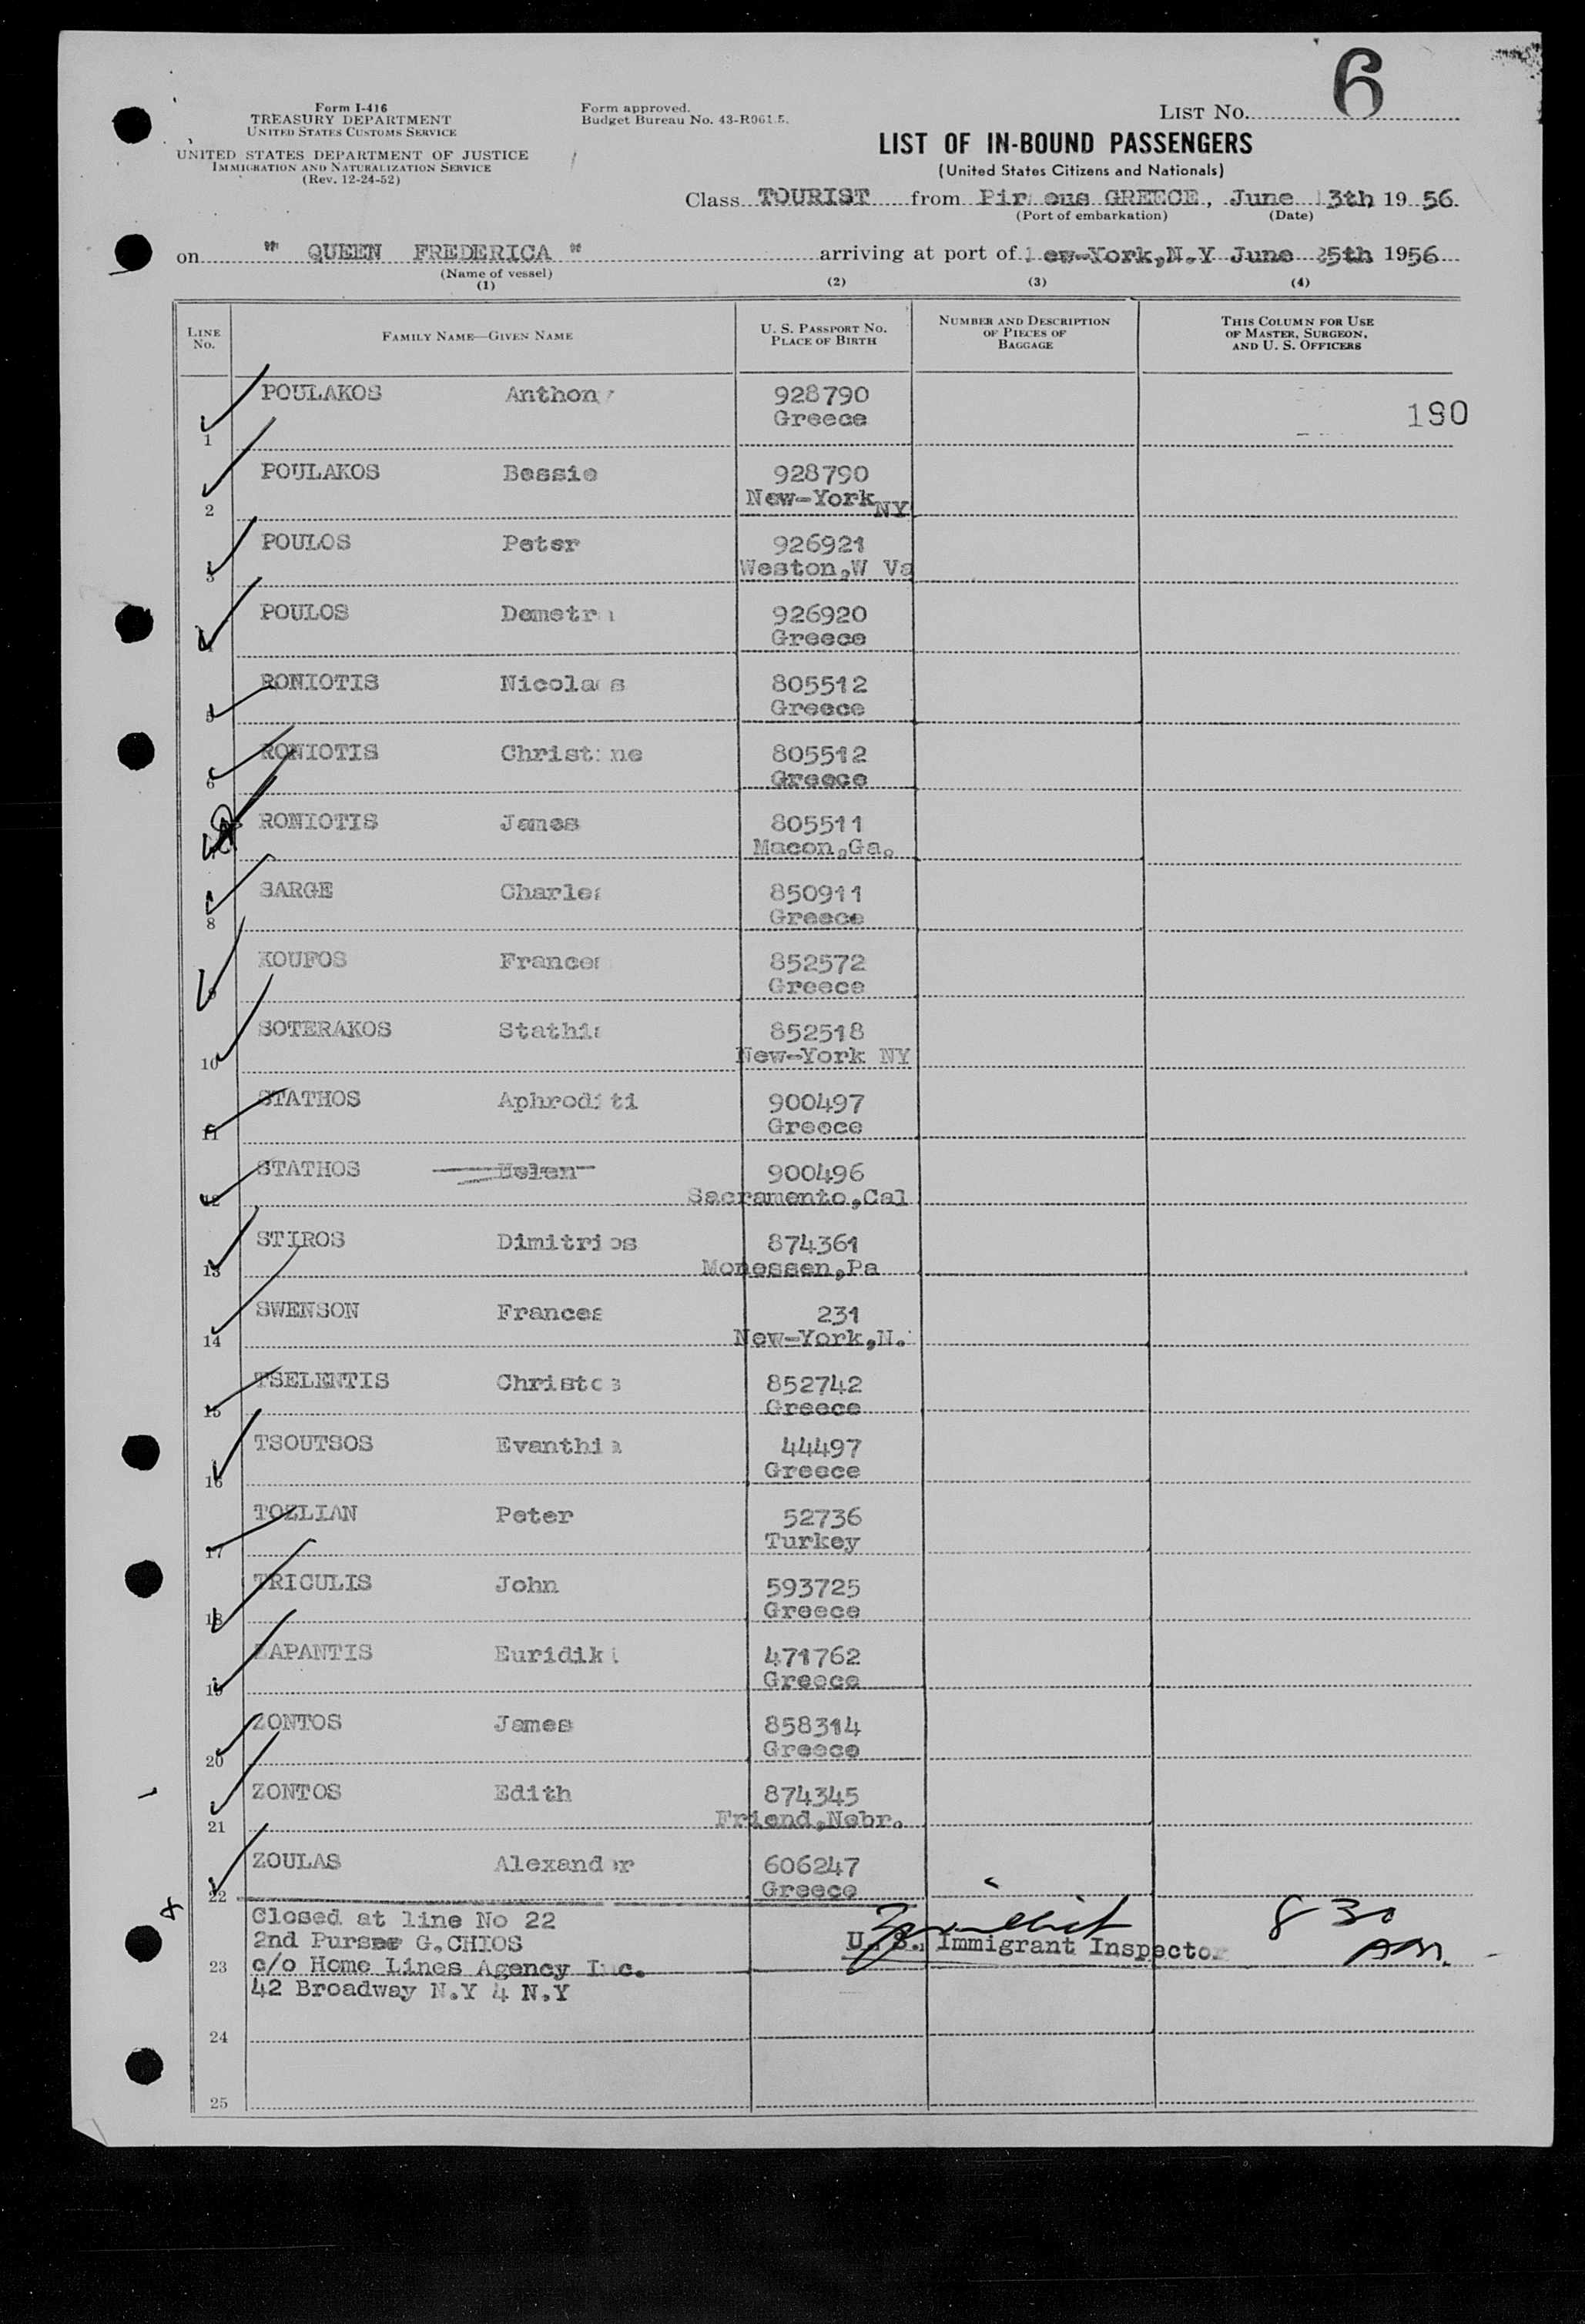 6
Form I-416
TREASURY DEPARTMENT
UNITED STATES CUSTOMS SERVICE
UNITED STATES DEPARTMENT OF JUSTICE
IMMIGRATION AND NATURALIZATION SERVICE
(Rev. 12-24-52)
Form approved.
Budget Bureau No. 43-R061.5.
LIST NO.
LIST OF IN-BOUND PASSENGERS
(United States Citizens and Nationals)
Class TOURIST from Pir eus GREECE, June 13th 19 56
(Port of embarkation) (Date)
on " QUEEN FREDERICA " arriving at port of ew-York,N.Y June 25th 1956
(Name of vessel)
(1) (2) (3) (4)
LINE NO. FAMILY NAME—GIVEN NAME U. S. PASSPORT NO. PLACE OF BIRTH NUMBER AND DESCRIPTION OF PIECES OF BAGGAGE THIS COLUMN FOR USE OF MASTER, SURGEON, AND U. S. OFFICERS
POULAKOS Anthony 928790
1 Greece 190
POULAKOS Bessie 928790
2 New-York NY
POULOS Peter 926921
3 Weston,W Va
POULOS Demetra 926920
4 Greece
RONIOTIS Nicolas 805512
5 Greece
RONIOTIS Christine 805512
6 Greece
RONIOTIS James 805511
Macon,Ga.
SARGE Charles 850911
8 Greece
KOUFOS Frances 852572
9 Greece
SOTERAKOS Stathis 852518
10 New-York NY
STATHOS Aphroditi 900497
11 Greece
STATHOS Helen 900496
12 Sacramento,Cal
STIROS Dimitrios 874361
13 Monessen,Pa
SWENSON Frances 231
14 New-York,N.
TSELENTIS Christos 852742
15 Greece
TSOUTSOS Evanthia 44497
16 Greece
TOZLIAN Peter 52736
17 Turkey
TRICULIS John 593725
18 Greece
ZAPANTIS Euridiki 471762
19 Greece
ZONTOS James 858314
20 Greece
ZONTOS Edith 874345
21 Friend,Nebr.
ZOULAS Alexander 606247
22 Greece
Closed at line No 22
2nd Purser G.CHIOS
U. S. Immigrant Inspector
8 30
AM.
23 c/o Home Lines Agency Inc.
42 Broadway N.Y 4 N.Y
24
25